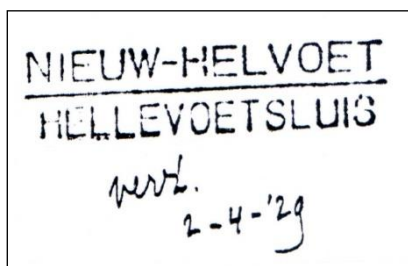 NIEUW-HELVOET
HELLEVOETSLUIS
verz.
2-4-'29